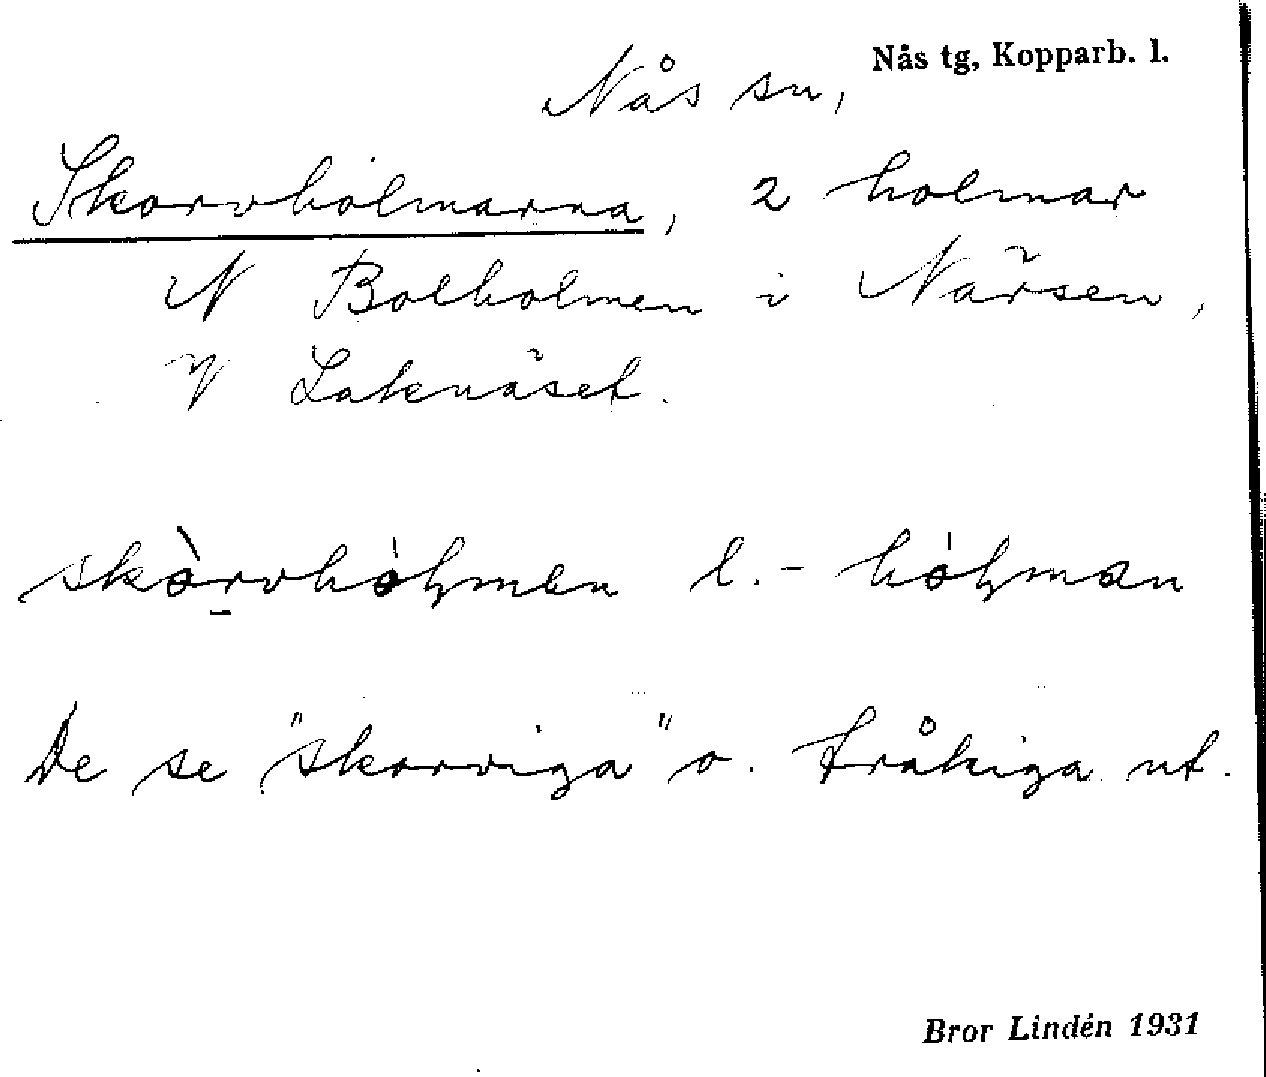 Nås tg, Kopparb. l.
Nås sn,
Skorvholmarna, 2 holmar
N Bolholmen i Närsen,
V Laknäset.
skòrvhòlmen l. - hòlman
De se "skorviga" o. tråkiga ut.
Bror Lindén 1931